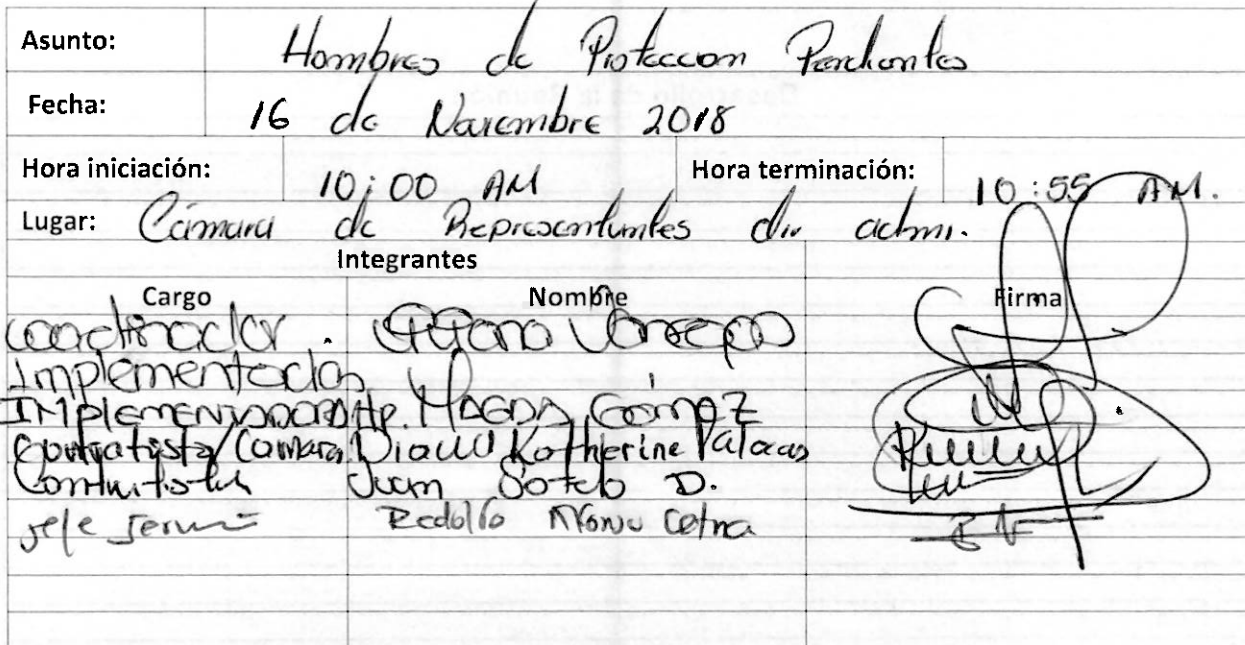 Asunto: Hombres de Proteccion Pendientes
Fecha: 16 de Noviembre 2018
Hora iniciación: 10:00 AM Hora terminación: 10:55 AM.
Lugar: Cámara de Representantes div admi.
Integrantes
Cargo Nombre Firma
Coordinador.
Implementador
IMPlementadora HP. MAGDA Gómez
Contratista/Camara Diana Katherine Palacios
Contratista Juan Sotelo D.
Jefe Rodolfo